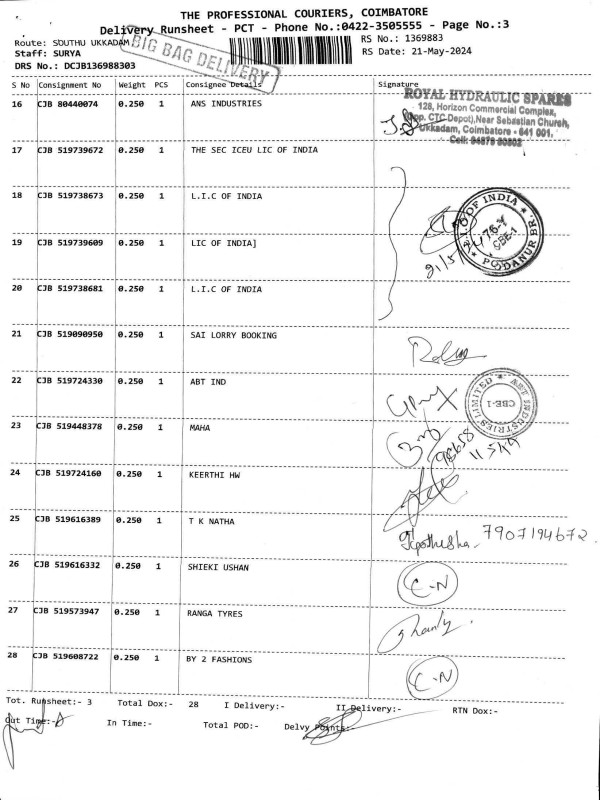 THE PROFESSIONAL COURIERS, COIMBATORE
Delivery Runsheet - PCT - Phone No.:0422-3505555 - Page No.:3
Route: SOUTHU UKKADAM
RS No.: 1369883
Staff: SURYA
RS Date: 21-May-2024
DRS No.: DCJB136988303
BIG BAG DELIVERY
S No Consignment No Weight PCS Consignee Details Signature
16 CJB 80440074 0.250 1 ANS INDUSTRIES
ROYAL HYDRAULIC SPARES
128, Horizon Commercial Complex,
CTC Depot),Near Sebastian Church,
Ukkadam, Coimbatore - 641 001.
17 CJB 519739672 0.250 1 THE SEC ICEU LIC OF INDIA
18 CJB 519738673 0.250 1 L.I.C OF INDIA
19 CJB 519739609 0.250 1 LIC OF INDIA]
OF INDIA
CBE-1
PODANUR BR.
20 CJB 519738681 0.250 1 L.I.C OF INDIA
21 CJB 519090950 0.250 1 SAI LORRY BOOKING
22 CJB 519724330 0.250 1 ABT IND
ABT INDUSTRIES LIMITED
CBE-1
23 CJB 519448378 0.250 1 MAHA
24 CJB 519724160 0.250 1 KEERTHI HW
25 CJB 519616389 0.250 1 T K NATHA
7907194672
26 CJB 519616332 0.250 1 SHIEKI USHAN
C-N
27 CJB 519573947 0.250 1 RANGA TYRES
28 CJB 519608722 0.250 1 BY 2 FASHIONS
C-N
Tot. Runsheet:- 3 Total Dox:- 28 I Delivery:- II Delivery:- RTN Dox:-
Out Time:- In Time:- Total POD:- Delvy Points:-